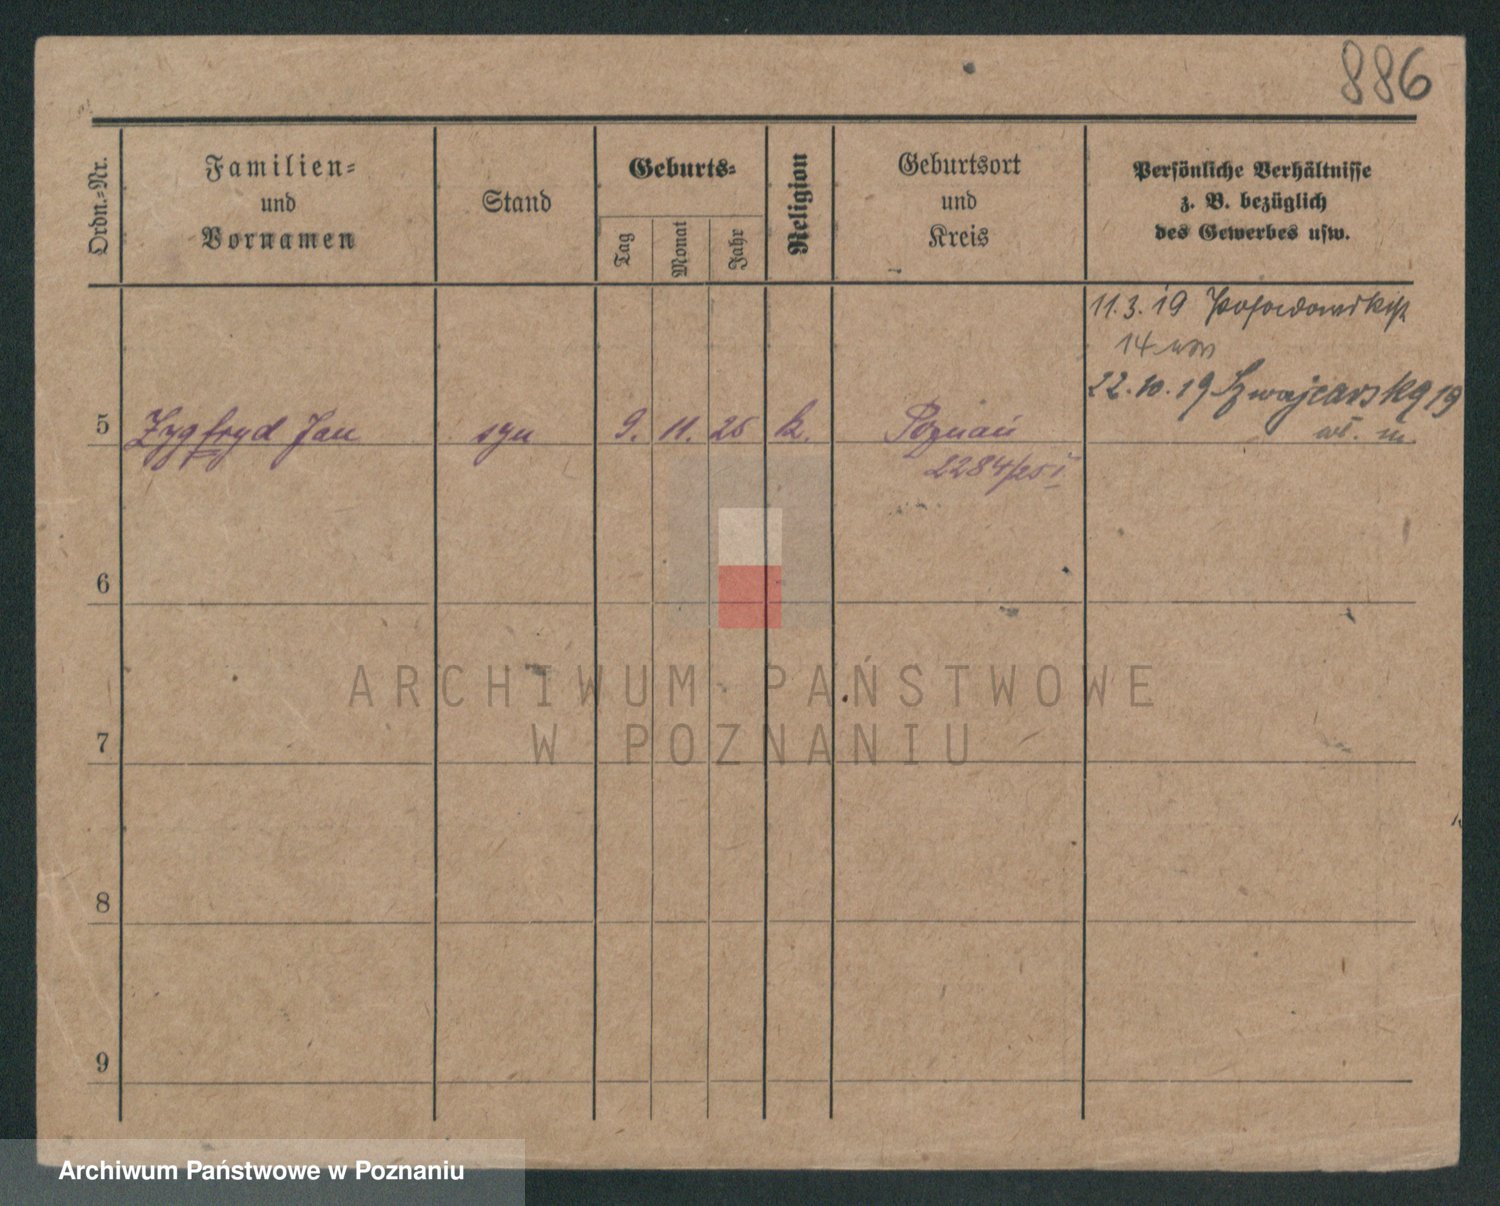 886
Ordn.-Nr.
Familien-
und
Vornamen
Stand
Geburts-
Tag
Monat
Jahr
Religion
Geburtsort
und
Kreis
Persönliche Verhältnisse
z. B. bezüglich
des Gewerbes usw.
11.3.19
14
22.10.19 Szwajcarska 19
5
Zygfryd Jan
syn
9.
11.
25
k.
Poznań
m.
2284/25 I
6
ARCHIWUM PAŃSTWOWE
W POZNANIU
7
8
9
Archiwum Państwowe w Poznaniu